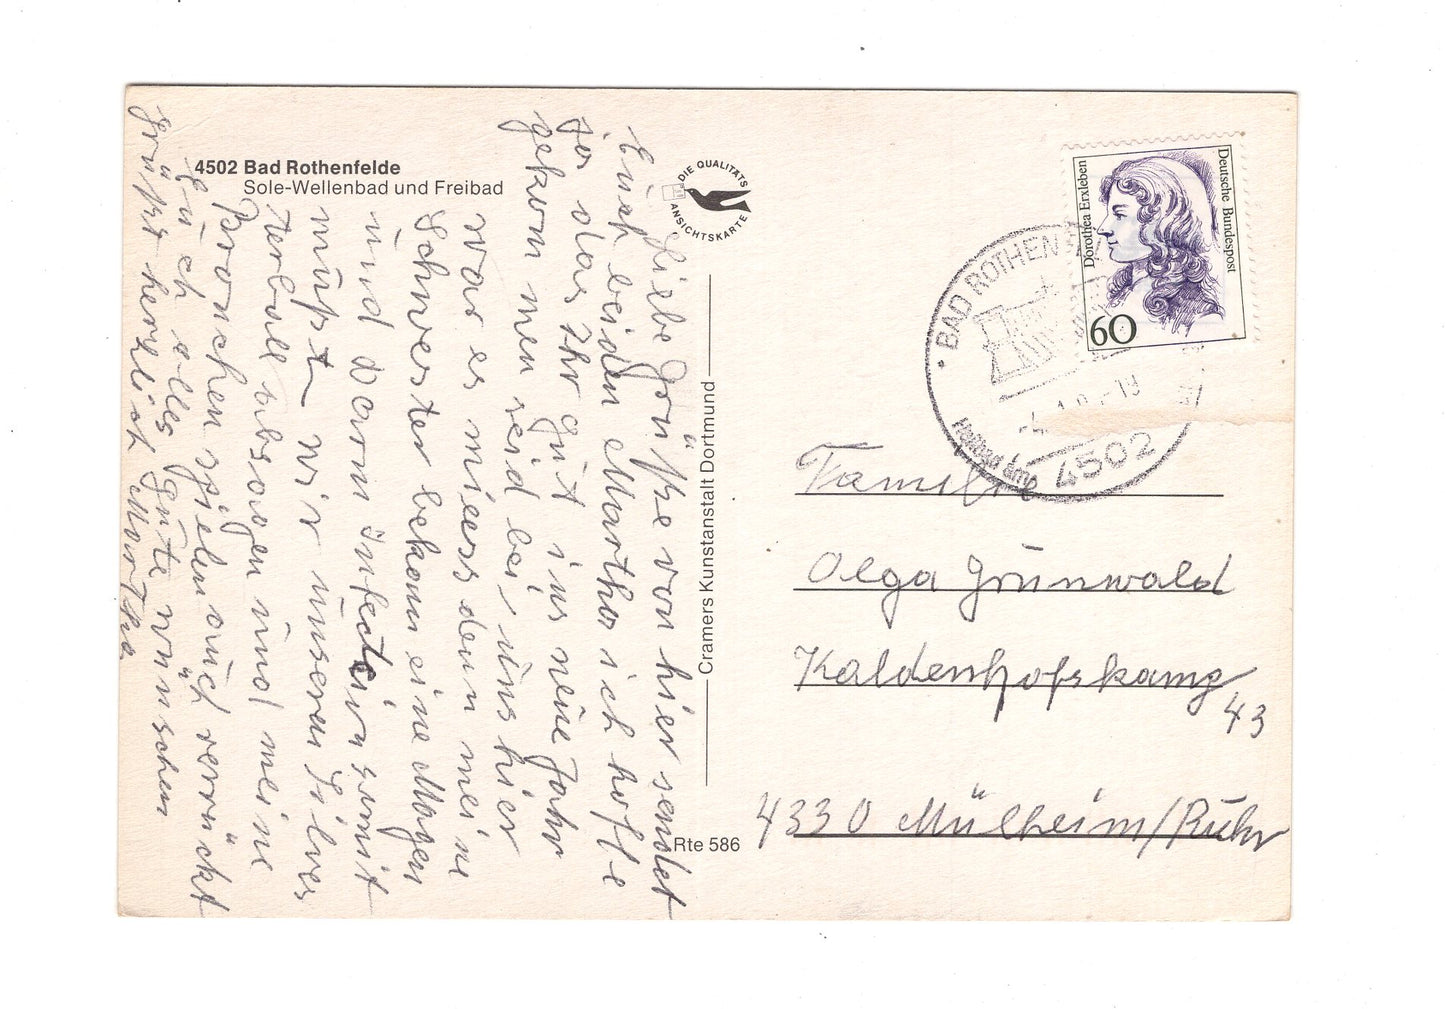 4502 Bad Rothenfelde
Sole-Wellenbad und Freibad
DIE QUALITÄTS
ANSICHTSKARTE
Cramers Kunstanstalt Dortmund
Rte 586
Liebe Grüße von hier sendet
Euch beiden Martha ich hoffe
ja das Ihr gut ins neue Jahr
gekommen seid bei, uns hier
war es miess denn meine
Schwester bekam eine Magen
und Darm Infection somit
mußt wir unseren Silves
terball absagen und meine
Bronchen spielen auch verrückt
Euch alles Gute wünschen
grüßt herzlich Martha
Deutsche Bundespost
Dorothea Erxleben
60
BAD ROTHENFE
4502
Familie
Olga Grünwald
Kaldenhofskamp
43
4330 Mülheim/Ruhr